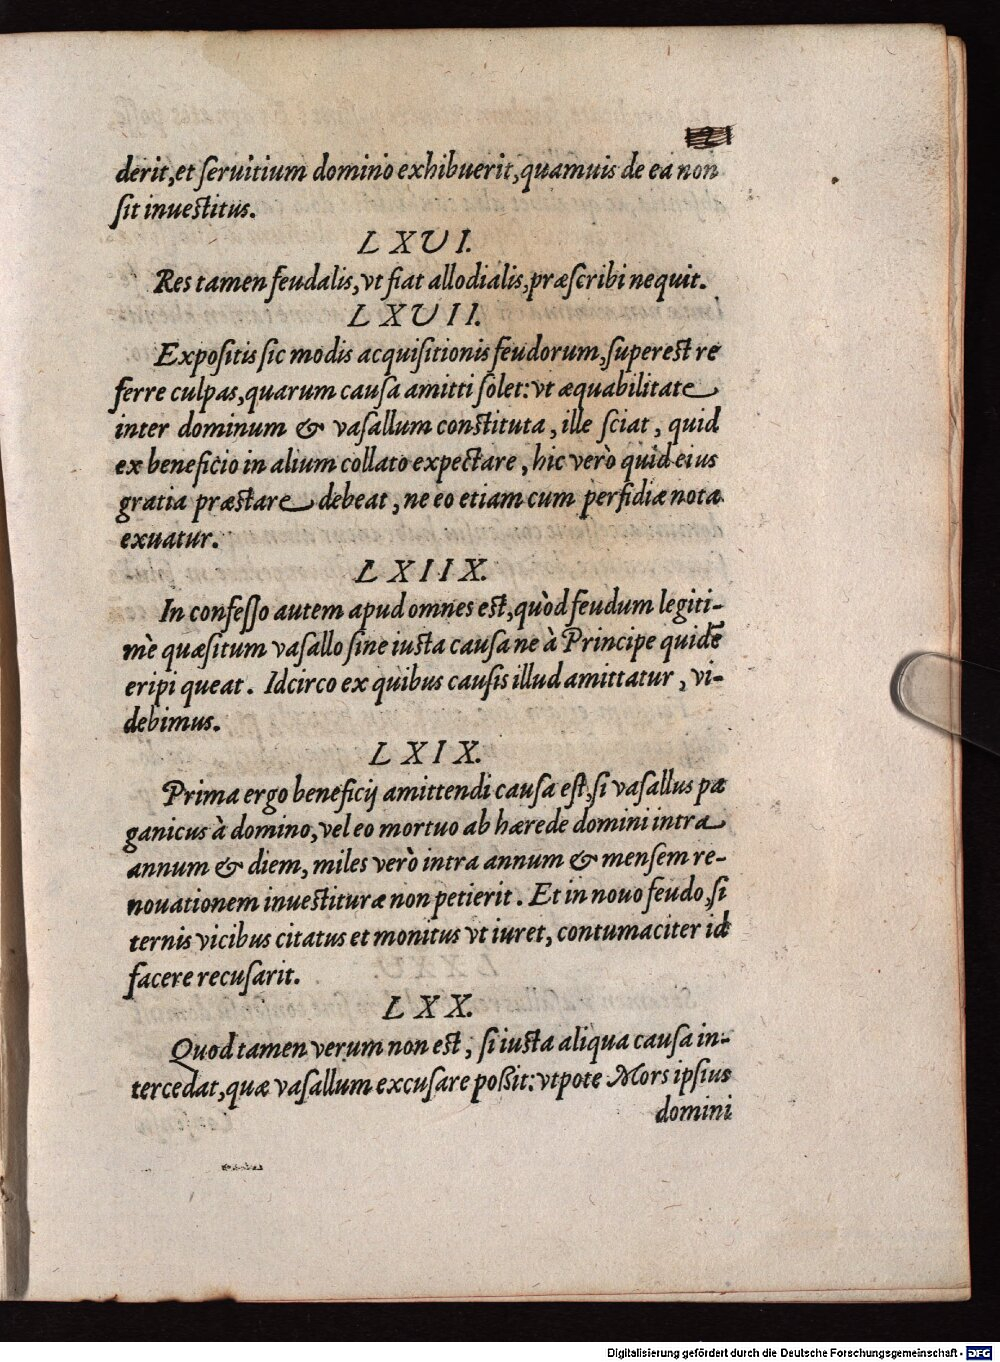 derit, et ſeruitium domino exhibuerit, quamuis de ea non
ſit inueſtitus.
LXVI.
Res tamen feudalis, vt fiat allodialis, præſcribi nequit.
LXVII.
Expoſitis ſic modis acquiſitionis feudorum, ſupereſt re
ferre culpas, quarum cauſa amitti ſolet: vt æquabilitate
inter dominum & vaſallum conſtituta, ille ſciat, quid
ex beneficio in alium collato expectare, hic verò quid eius
gratia præſtare debeat, ne eo etiam cum perfidiæ nota
exuatur.
LXIIX.
In confeſſo autem apud omnes eſt, quòd feudum legiti-
mè quæſitum vaſallo ſine iuſta cauſa ne à Principe quidē
eripi queat. Idcirco ex quibus cauſis illud amittatur, vi-
debimus.
LXIX.
Prima ergo beneficij amittendi cauſa eſt, ſi vaſallus pa
ganicus à domino, vel eo mortuo ab hærede domini intra
annum & diem, miles verò intra annum & menſem re-
nouationem inueſtituræ non petierit. Et in nouo feudo, ſi
ternis vicibus citatus et monitus vt iuret, contumaciter id
facere recuſarit.
LXX.
Quod tamen verum non eſt, ſi iuſta aliqua cauſa in-
tercedat, quæ vaſallum excuſare poßit: vtpote Mors ipſius
domini
Digitalisierung gefördert durch die Deutsche Forschungsgemeinschaft - DFG